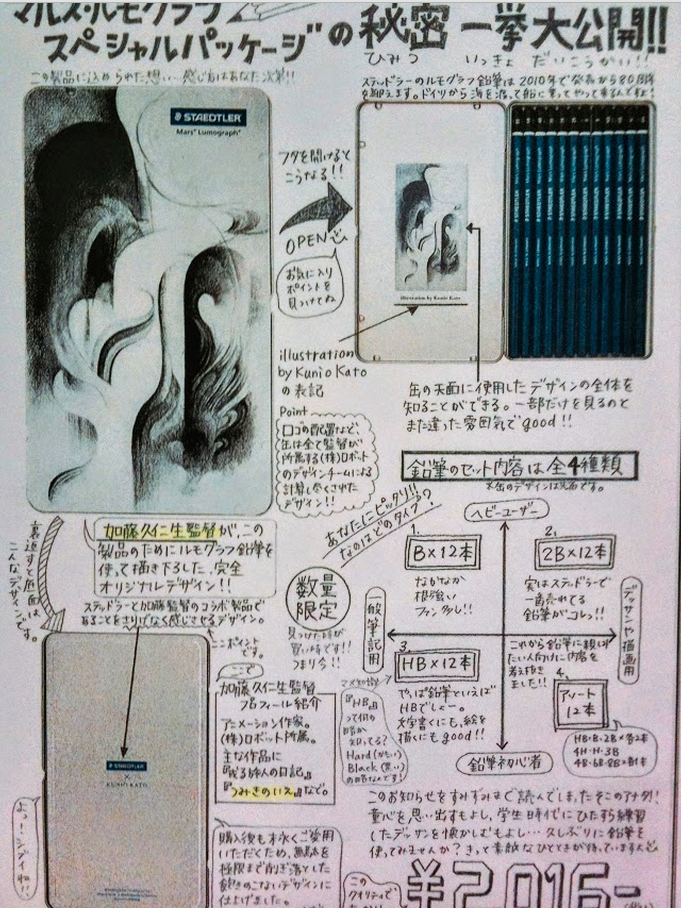 マルス・ルモグラフ
スペシャルパッケージ"の秘密 一挙大公開!!
ひみつ いっきょ だいこうかい!!
この製品に込められた想い…感じ方はあなた次第!!
ステッドラーのルモグラフ鉛筆は2010年で発売から80周年
を迎えます。ドイツから海を渡って船に乗ってやって来るんですね!
STAEDTLER
Mars Lumograph
フタを開けると
こうなる!!
OPEN
お気に入り
ポイントを
見つけてね
illustration by Kunio Kato
illustration
by Kunio Kato
の表記
缶の天面に使用したデザインの全体を
知ることができる。一部だけを見るのと
また違った雰囲気でgood!!
Point
ロゴの配置など、
缶は全て監督が
所属する(株)ロボット
のデザインチームによる
計算し尽くされた
デザイン!!
鉛筆のセット内容は全4種類
※缶のデザインは共通です。
加藤久仁生監督が、この
製品のためにルモグラフ鉛筆を
使って描き下ろした、完全
オリジナルデザイン!!
裏返すと底面は
こんなデザインです。
ステッドラーと加藤監督のコラボ製品で
あることをさりげなく感じさせるデザイン。
ここポイント
です。
数量
限定
見つけた時が
買い時です!!
つまり今!!
あなたにピッタリ!!
なのはどのタイプ?
ヘビーユーザー
一般筆記用
デッサンや描画用
鉛筆初心者
1.
B×12本
なかなか
根強い
ファン多し!!
2.
2B×12本
実はステッドラーで
一番売れてる
鉛筆がコレッ!!
3.
HB×12本
やっぱ鉛筆といえば
HBでしょー。
文字書くにも、絵を
描くにもgood!!
これから鉛筆に親しみ
たい人向けに内容を
考え抜き
ました!!
4.
アソート
12本
HB・B・2B×各2本
4H・H・3B
4B・6B・8B×各1本
マメ知識
『HB』
って何の
略か
知ってる?
Hard(かたい)
Black(黒い)
の略なんです!
STAEDTLER
×
KUNIO KATO
よっ!シブイね!!
ここで
加藤久仁生監督
プロフィール紹介
アニメーション作家。
(株)ロボット所属。
主な作品に
『或る旅人の日記』
『つみきのいえ』など。
購入後も末永くご愛用
いただくため、無駄を
極限まで削ぎ落とした
飽きのこないデザインに
仕上げました。
このお知らせをすみずみまで読んでしまったそこのアナタ!!
童心を思い出すもよし、学生時代にひたすら練習
したデッサンを懐かしむもよし…久しぶりに鉛筆を
使ってみませんか?きっと素敵なひとときが待っていますよ
このクオリティで
¥2,016-